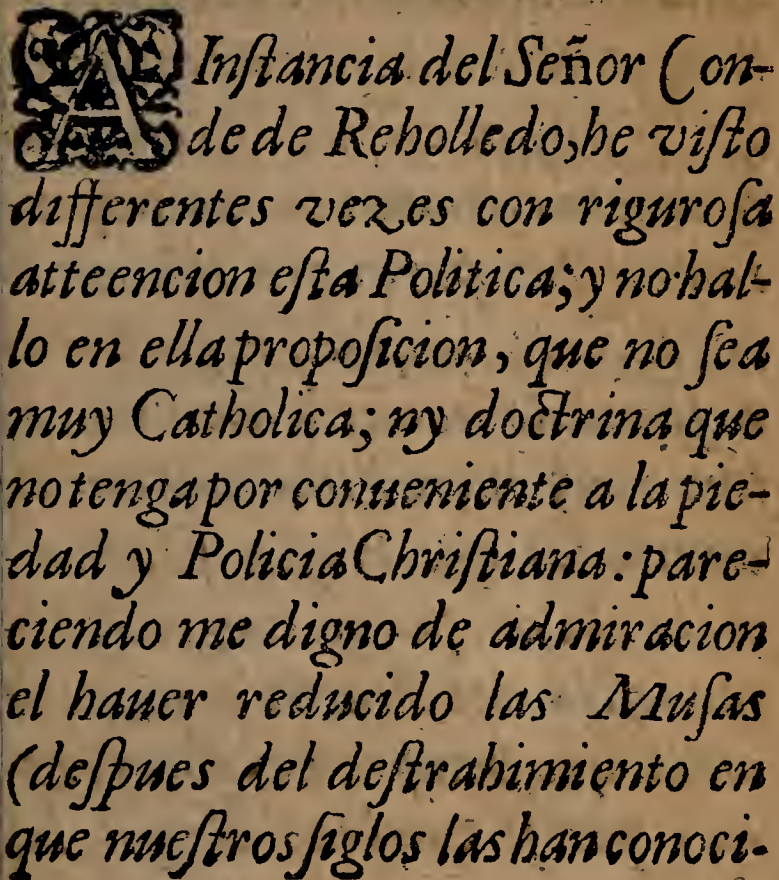 A Inſtancia del Señor Con-
de de Rebolledo, he viſto
differentes vezes con riguroſa
atteencion eſta Politica; y no hal-
lo en ella propoſicion, que no ſea
muy Catholica; ny doctrina que
no tenga por conueniente a la pie-
dad y Policia Chriſtiana: pare-
ciendo me digno de admiracion
el hauer reducido las Muſas
(deſpues del deſtrahimiento en
que nueſtros ſiglos las han conoci-